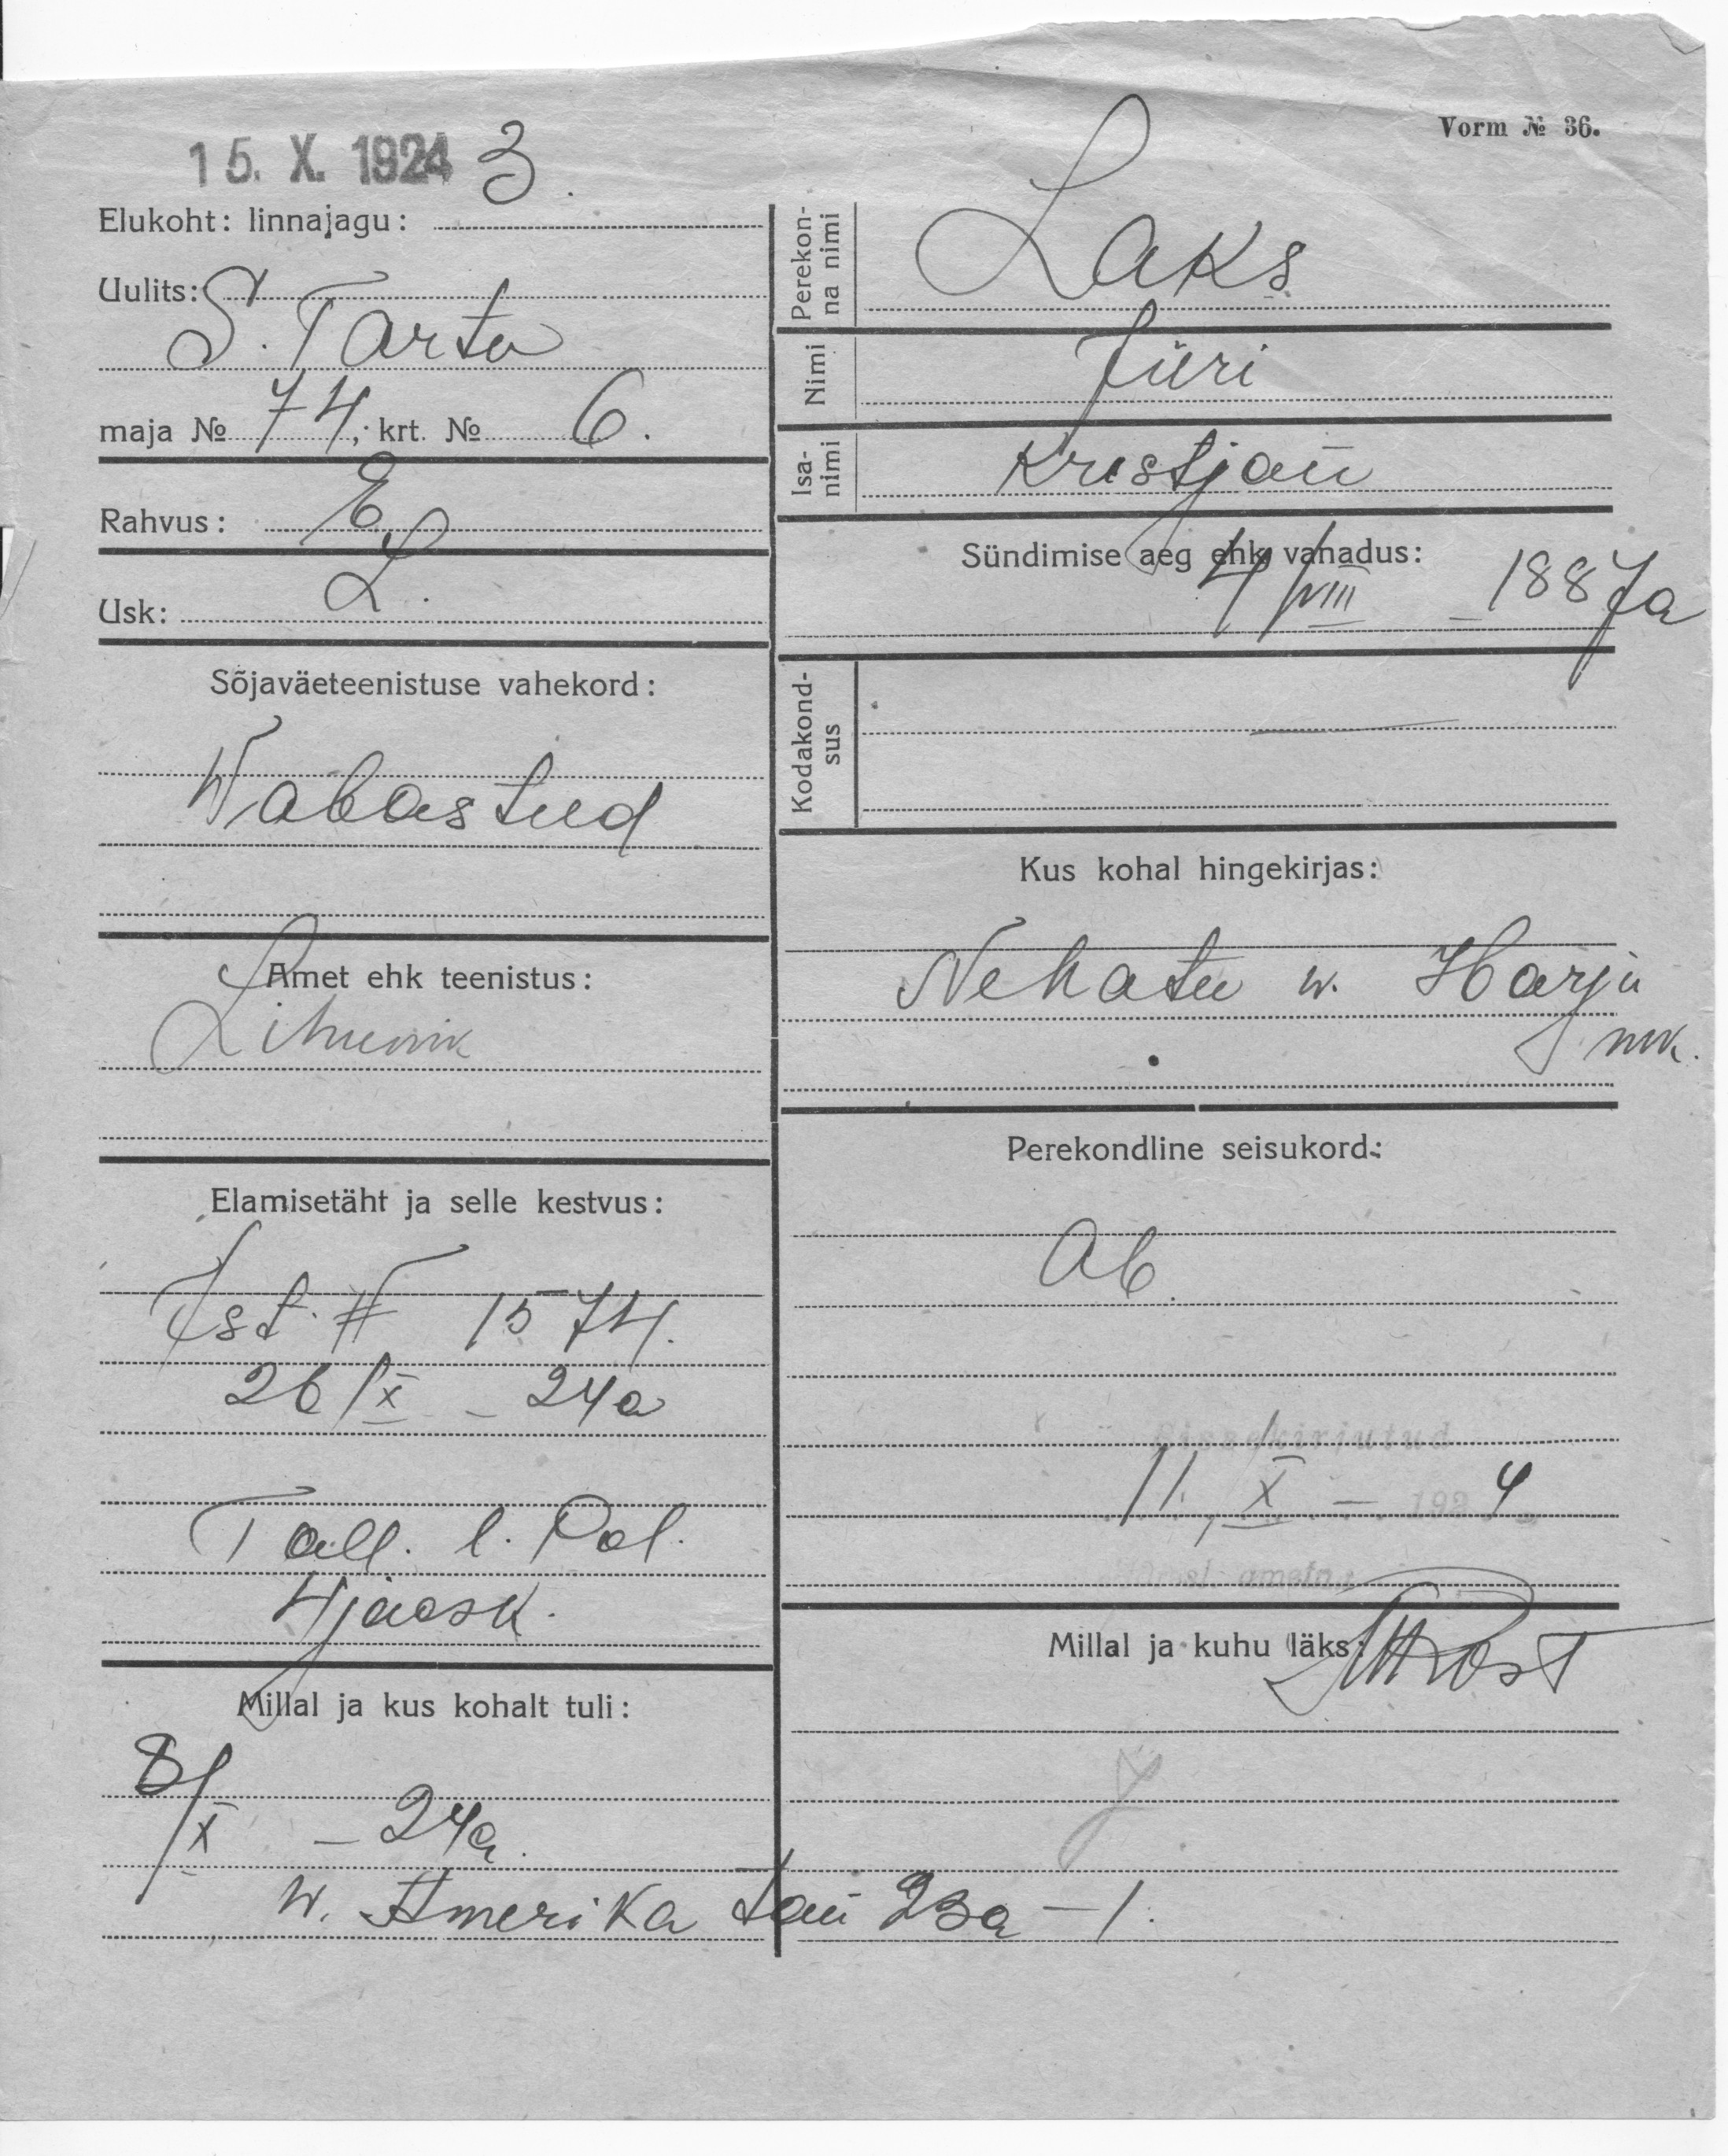 Vorm № 36.
15. X. 1924 3.
Elukoht: linnajagu:
Uulits:
S. Tartu
maja № 74, krt. № 6.
Rahvus: E.
Usk: L.
Sõjaväeteenistuse vahekord:
Wabastud
Amet ehk teenistus:
Lihunik
Elamisetäht ja selle kestvus:
Ist. # 1574.
26/X - 24a
Tall. l. Pol.
4 jaosk.
Millal ja kus kohalt tuli:
8/X - 24a.
w. Amerika tän 23a - 1.
Perekonna nimi
Laks
Nimi
Jüri
Isanimi
Kristjan
Sündimise aeg ehk vanadus:
4/VIII - 1887a
Kodakondsus
—
Kus kohal hingekirjas:
Nehatu w. Harju
mk.
Perekondline seisukord:
Ab.
Sissekirjutud
11. X - 1924
Millal ja kuhu läks: